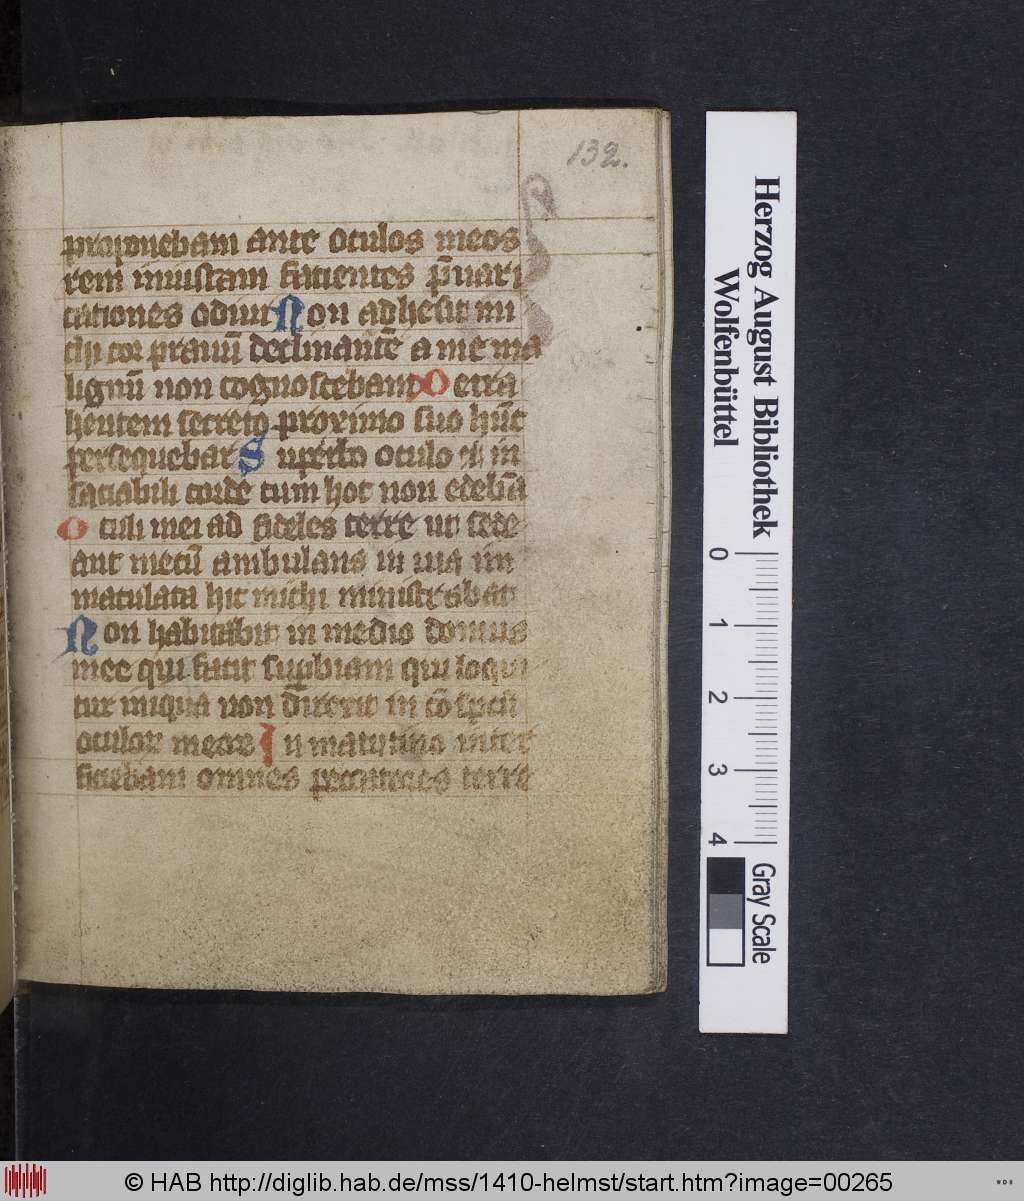 132.
proponebam ante oculos meos
rem iniustam facientes p̄uari
cationes odiui Non adhesit mi
chi cor prauū declinantē a me ma
lignū non cognoscebam Detra
hentem secreto proximo suo hūc
persequebar Superbo oculo & in
saciabili corde cum hoc non edebā
Oculi mei ad fideles terre ut sede
ant mecū ambulans in uia im
maculata hic michi ministrabat
Non habitabit in medio domus
mee qui facit suꝑbiam qui loqui
tur iniqua non direxit in cōspcū
oculoꝝ meoꝝ In matutino inter
ficiebam omnes peccatores terre
Herzog August Bibliothek
Wolfenbüttel
0 1 2 3 4
Gray Scale
© HAB http://diglib.hab.de/mss/1410-helmst/start.htm?image=00265